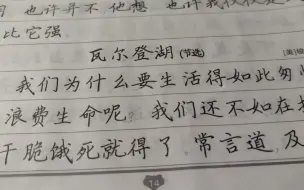 也许并不他想 也许我
比它强
瓦尔登湖(节选)
我们为什么要生活得如此匆
浪费生命呢? 我们还不如在
干脆饿死就得了 常言道,及
14